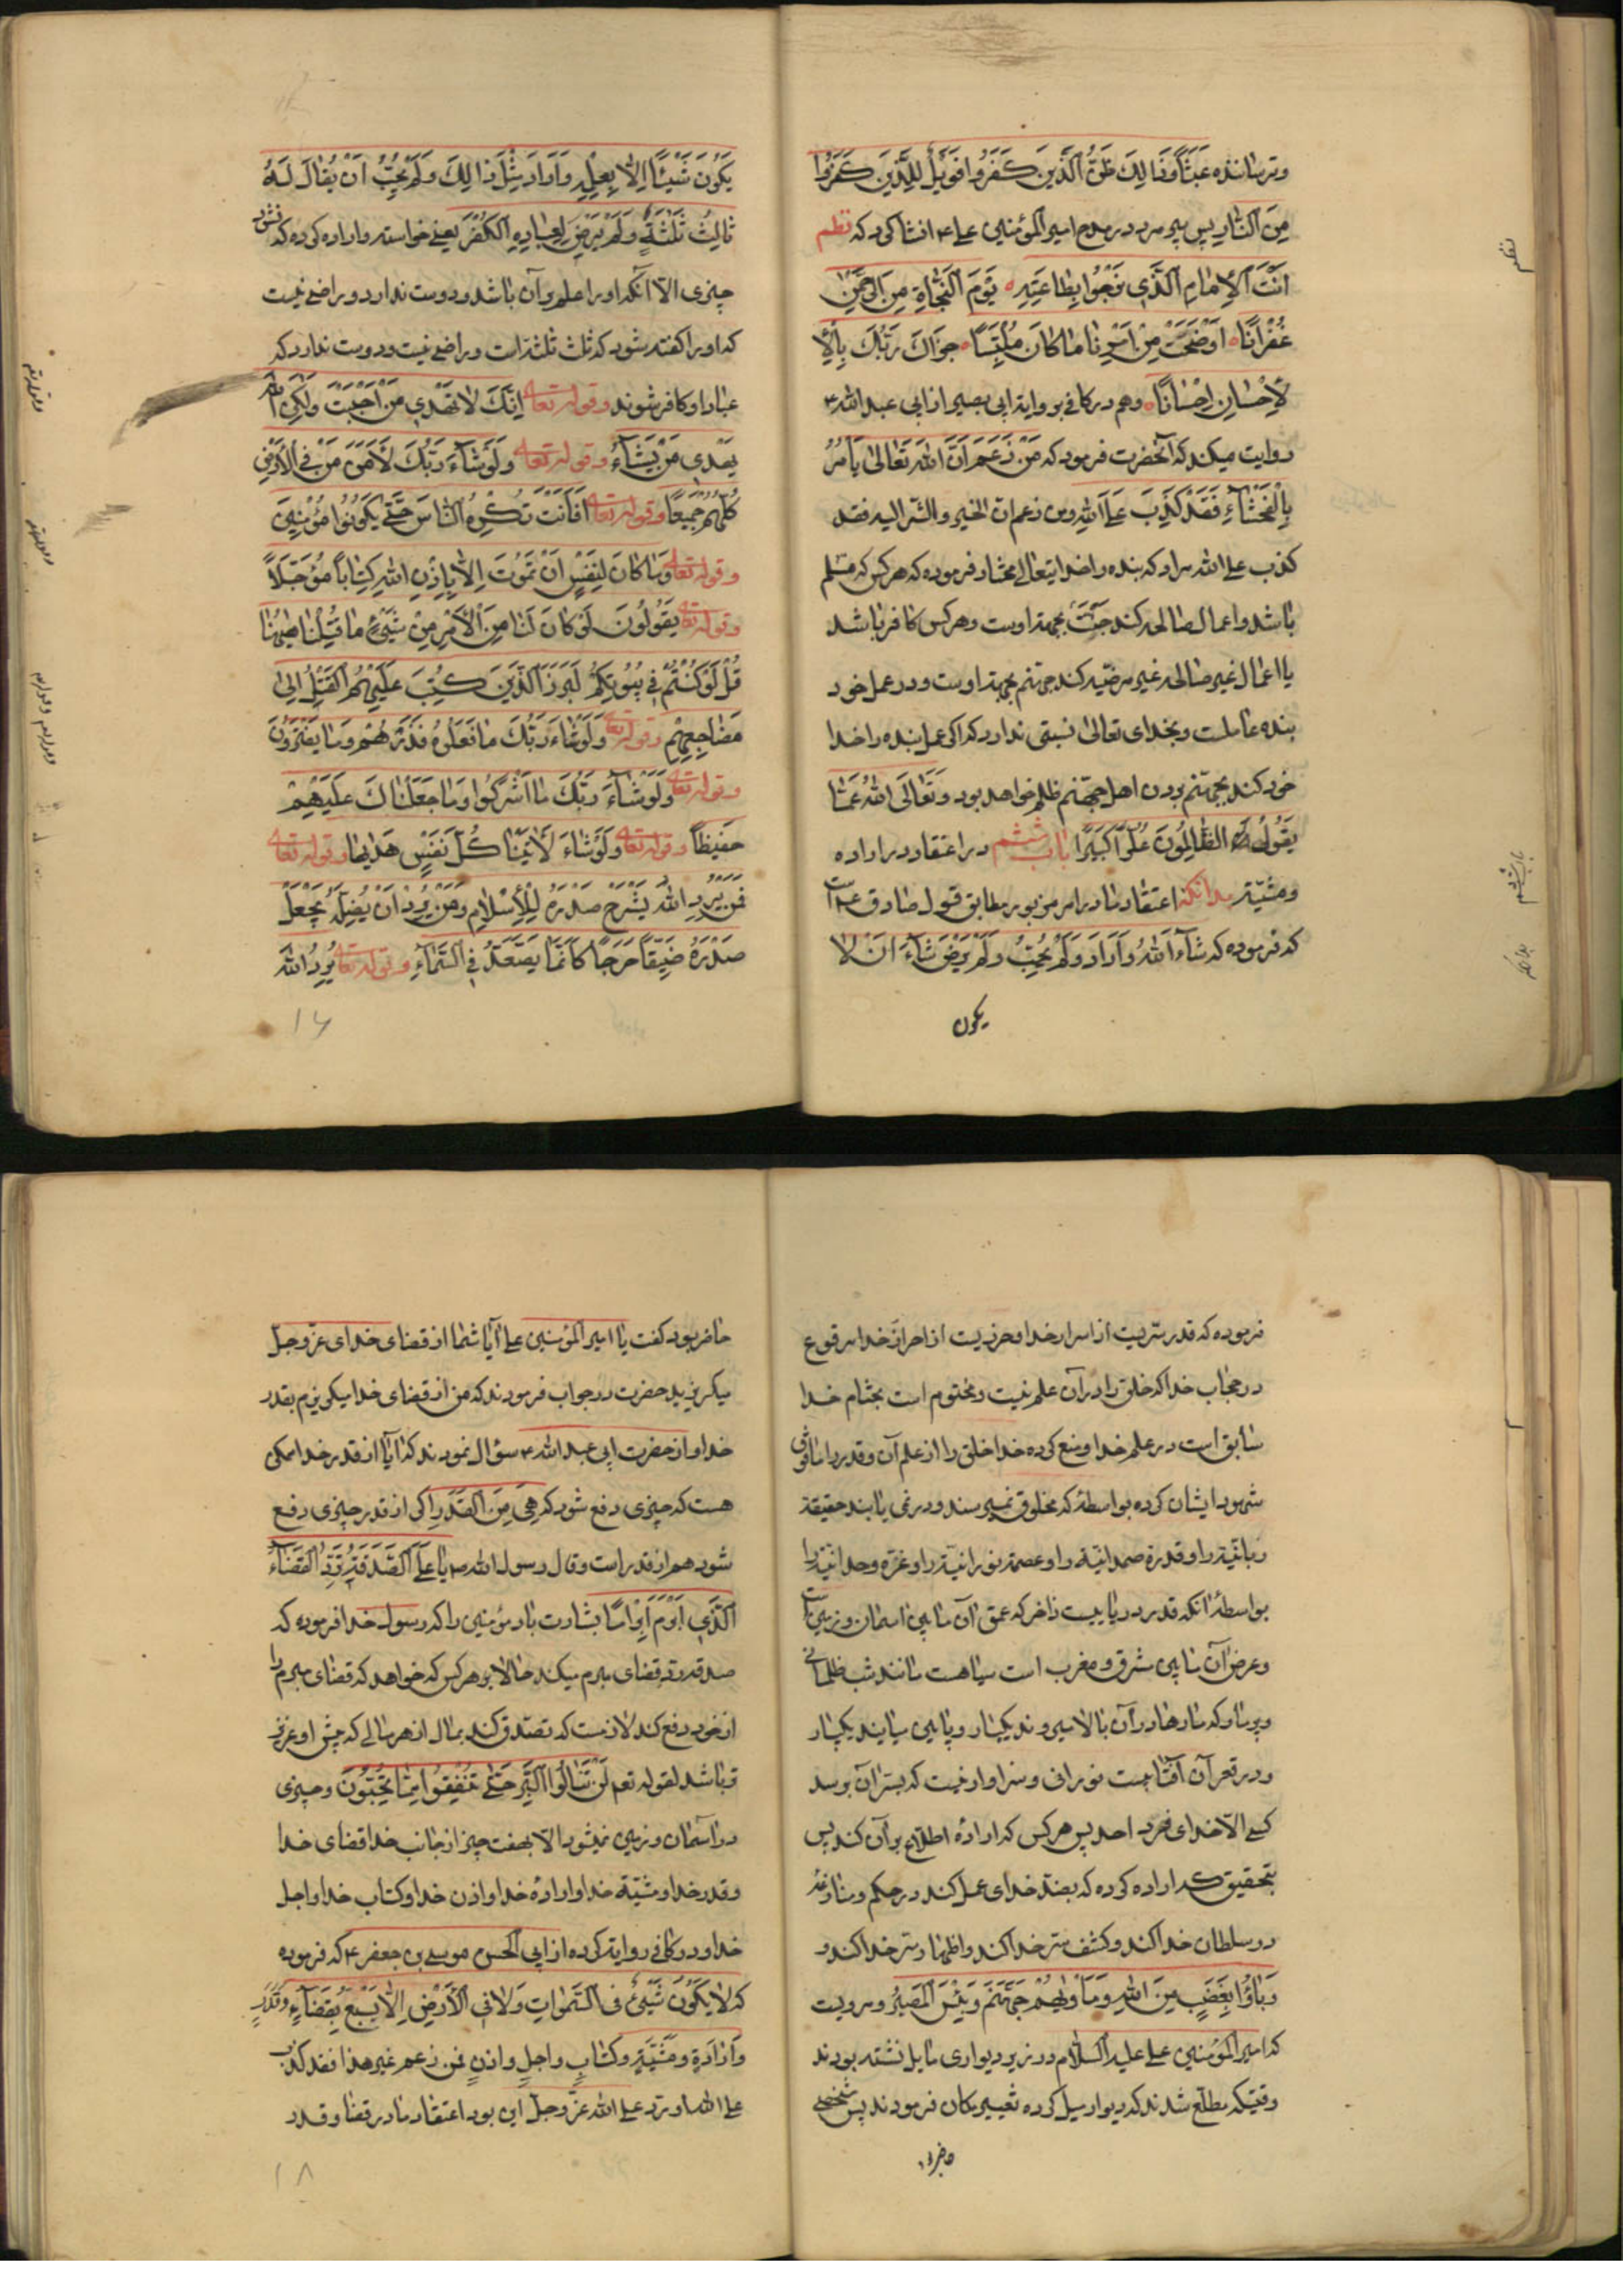 وترساننده عبثا و ذالك ظن الذين كفروا فويل للذين كفروا
من النار پس پیر مرد در مدح امیر المؤمنین علی ع انشا کرد که نظم
انت الامام الذی نرجوا بطاعته یوم النجاة من الرحمن
غفرانا اوضحت من امرنا ما كان ملتبسا جزاك ربك بالا
لاحسان احسانا وهم در کافی بروایة ابی بصیر از ابی عبد الله ع
روایت میکند که آنحضرت فرمود که من زعم ان الله تعالى يأمر
بالفحشاء فقد كذب على الله ومن زعم ان الخير والشر اليه فقد
كذب على الله مراد که بنده را خدایتعالی مختار فرموده که هر کس که مسلم
باشد و اعمال صالحه کند جنت بجهة اوست وهر کس کافر باشد
یا اعمال غیر صالحه غیر مرضیه کند جهنم بجهة اوست ودر عمل خود
بنده عاملست وبخدای تعالی نسبتی ندارد که اگر عمل بنده را خدا
خود کند بجهنم بردن اهل جهنم ظلم خواهد بود وتعالى الله عما
يقول الظالمون علوا كبيرا باب ششم در اعتقاد در اراده
ومشیة بدانکه اعتقاد ما در امر مزبور مطابق قول صادق ع است
که فرموده که شاء الله واراد ولم يحب ولم يرض شاء ان لا
یکون
نظم
باب ششم
بدانکه
يكون شيئا الا بعلمه واراد مثل ذالك ولم يحب ان يقال له
ثالث ثلثة ولم يرض لعباده الكفر یعنی خواسته و اراده کرده که نشود
چیزی الا آنکه او را علم بر آن باشد ودوست ندارد و راضی نیست
که او را گفته شود که ثالث ثلثه است و راضی نیست ودوست ندارد که
عباد او کافر شوند وقوله تعالى انك لا تهدي من احببت ولكن الله
يهدي من يشاء وقوله تعالى ولو شاء ربك لآمن من في الارض
كلهم جميعا وقوله تعالى افانت تكره الناس حتى يكونوا مؤمنين
وقوله تعالى وما كان لنفس ان تموت الا باذن الله كتابا مؤجلا
وقوله تعالى يقولون لو كان لنا من الامر من شيئ ما قتلنا ههنا
قل لو كنتم في بيوتكم لبرز الذين كتب عليهم القتل الى
مضاجعهم وقوله تعالى ولو شاء ربك ما فعلوه فذرهم وما يفترون
وقوله تعالى ولو شاء ربك ما اشركوا وما جعلناك عليهم
حفيظا وقوله تعالى ولو شاء لآتينا كل نفس هديها وقوله تعالى
فمن يرد الله يشرح صدره للاسلام ومن يرد ان يضله يجعل
صدره ضيقا حرجا كانما يصعد في السماء وقوله تعالى يريد الله
۱۶
فرموده که قدر سریست از اسرار خدا وحرزیست از احراز خدا مرفوع
در حجاب خدا که خلق را در آن علم نیست ومختوم است بختام خدا
سابق است در علم خدا ومنع کرده خدا خلق را از علم آن وقدر را مافوق
شهود ایشان کرده بواسطه که مخلوق نمیرسند ودر نمی یابند حقیقة
ربانیة را وقدرة صمدانیة را وعصمة نورانیة را وعزة وحدانیة را
بواسطه آنکه قدر دریاییست زاخر که عمق آن مابین اسمان وزمین است
وعرض آن مابین مشرق ومغرب است سیاهست مانند شب ظلمانی
وپر مار که مارها در آن بالا میروند یکبار وپایین میایند یکبار
ودر قعر آن آفتابیست نورانی وسزاوار نیست که بسر آن برسد
کسی الا خدای فرد احد پس هر کس که اراده اطلاع بر آن کند پس
بتحقیق که اراده کرده که بضد خدای عمل کند در حکم ومنازعه
در سلطان خدا کند وکشف ستر خدا کند واظهار سر خدا کند و
وباؤا بغضب من الله ومأويهم جهنم وبئس المصير ومرویست
که امیر المؤمنین علی علیه السلام در زیر دیواری مایل نشسته بودند
وقتیکه مطلع شدند که دیوار میل کرده تغییر مکان فرمودند پس شخصی
حاضر بود
حاضر بود گفت یا امیر المؤمنین علی آیا شما از قضای خدای عز وجل
میگریزید حضرت در جواب فرمودند که من از قضای خدا میگریزم بقدر
خدا و از حضرت ابی عبد الله ع سؤال نمودند که آیا از قدر خدا ممکن
هست که چیزی دفع شود که هی من القدر اگر از قدر چیزی دفع
شود هم از قدر است وقال رسول الله ص یا علی الصدقة ترد القضاء
الذي ابرم ابراما بشارت باد مؤمنین را که رسول خدا فرموده که
صدقه رد قضای مبرم میکند حالا بر هر کس که خواهد که قضای مبرم را
از خود دفع کند لازمست که تصدق کند بمال از هر مالی که پیش او عزیز
تر باشد لقوله تع لن تنالوا البر حتى تنفقوا مما تحبون وچیزی
در آسمان وزمین نمیشود الا بهفت چیز از جانب خدا قضای خدا
وقدر خدا ومشیة خدا و ارادۀ خدا واذن خدا وکتاب خدا واجل
خدا ودر کافی روایة کرده از ابی الحسن موسی بن جعفر ع که فرموده
که لا يكون شيئ في السموات ولا في الارض الا بسبع بقضاء وقدر
وارادة ومشية وكتاب واجل واذن فمن زعم غير هذا فقد كذب
على الله او رد على الله عز وجل این بود اعتقاد ما در قضا وقدر
۱۸